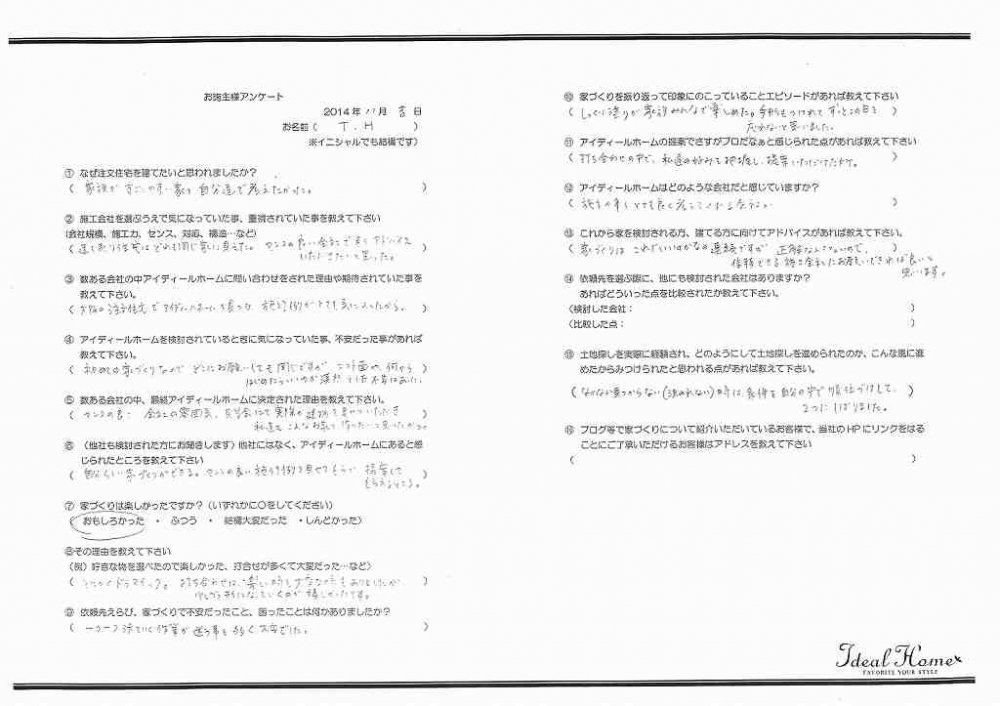 お施主様アンケート
2014年 11月 吉日
お名前( T.H )
※イニシャルでも結構です)
① なぜ注文住宅を建てたいと思われましたか?
( 家族がすごしやすい家を自分達で考えたかった。 )
② 施工会社を選ぶうえで気になっていた事、重視されていた事を教えて下さい
(会社規模、施工力、センス、対応、構造…など)
センスの良い会社で
アドバイス
いただきたいと思った。 )
③ 数ある会社の中アイディールホームに問い合わせをされた理由や期待されていた事を
教えて下さい。
施工例がとても気に入ったから。 )
④ アイディールホームを検討されているときに気になっていた事、不安だった事があれば
教えて下さい。
( 初めての家づくりなので どこにお願いしても同じですが コスト面や、何から
はじめたらいいのか 不安はあった。 )
⑤ 数ある会社の中、最終アイディールホームに決定された理由を教えて下さい。
( センスの良さ 会社の雰囲気、見学会にて実際の建物を見せていただき
私達もこんなお家を作りたいと思ったから。 )
⑥ (他社も検討された方にお聞きします)他社にはなく、アイディールホームにあると感
じられたところを教えて下さい
( 自分らしい家づくりができる。センスの良い施工例を見せてもらい、提案して
もらえるところ。 )
⑦ 家づくりは楽しかったですか?(いずれかに○をしてください)
( おもしろかった ・ ふつう ・ 結構大変だった ・しんどかった)
⑧その理由を教えて下さい
(例)好きな物を選べたので楽しかった、打合せが多くて大変だった…など)
打ち合わせは、楽しい時も大変な時もありましたが
少しづつ形になっていくのが嬉しかったです。 )
⑨ 依頼先えらび、家づくりで不安だったこと、困ったことは何かありましたか?
( 一つ一つ決めていく作業が迷う事も多く大変でした。 )
⑩ 家づくりを振り返って印象にのこっていることエピソードがあれば教えて下さい
( しっくい塗りが家族みんなで楽しめた。手形もつけれてずっとこの日を
忘れないと思いました。 )
⑪ アイディールホームの提案でさすがプロだなぁと感じられた点があれば教えて下さい
( 打ち合わせの中で、私達の好みを把握し、提案いただけた所。 )
⑫ アイディールホームはどのような会社だと感じていますか?
( 施主の事をとても良く考えてくれる会社。 )
⑬ これから家を検討される方、建てる方に向けてアドバイスがあれば教えて下さい。
( 家づくりは これでいいのかなの連続ですが 正解なんてないので、
信頼できる施工会社にお願いできれば良いと
思います。 )
⑭ 依頼先を選ぶ際に、他にも検討された会社はありますか?
あればどういった点を比較されたか教えて下さい。
(検討した会社: )
(比較した点: )
⑮ 土地探しを実際に経験され、どのようにして土地探しを進められたのか、こんな風に進
めたからみつけられたと思われる点があれば教えて下さい。
( なかなか見つからない(決めれない)時は、条件を自分の中で順位づけして、
2つにしぼりました。 )
⑯ ブログ等で家づくりについて紹介いただいているお客様で、当社のHPにリンクをはる
ことにご了承いただけるお客様はアドレスを教えて下さい
( )
Ideal Home
FAVORITE YOUR STYLE